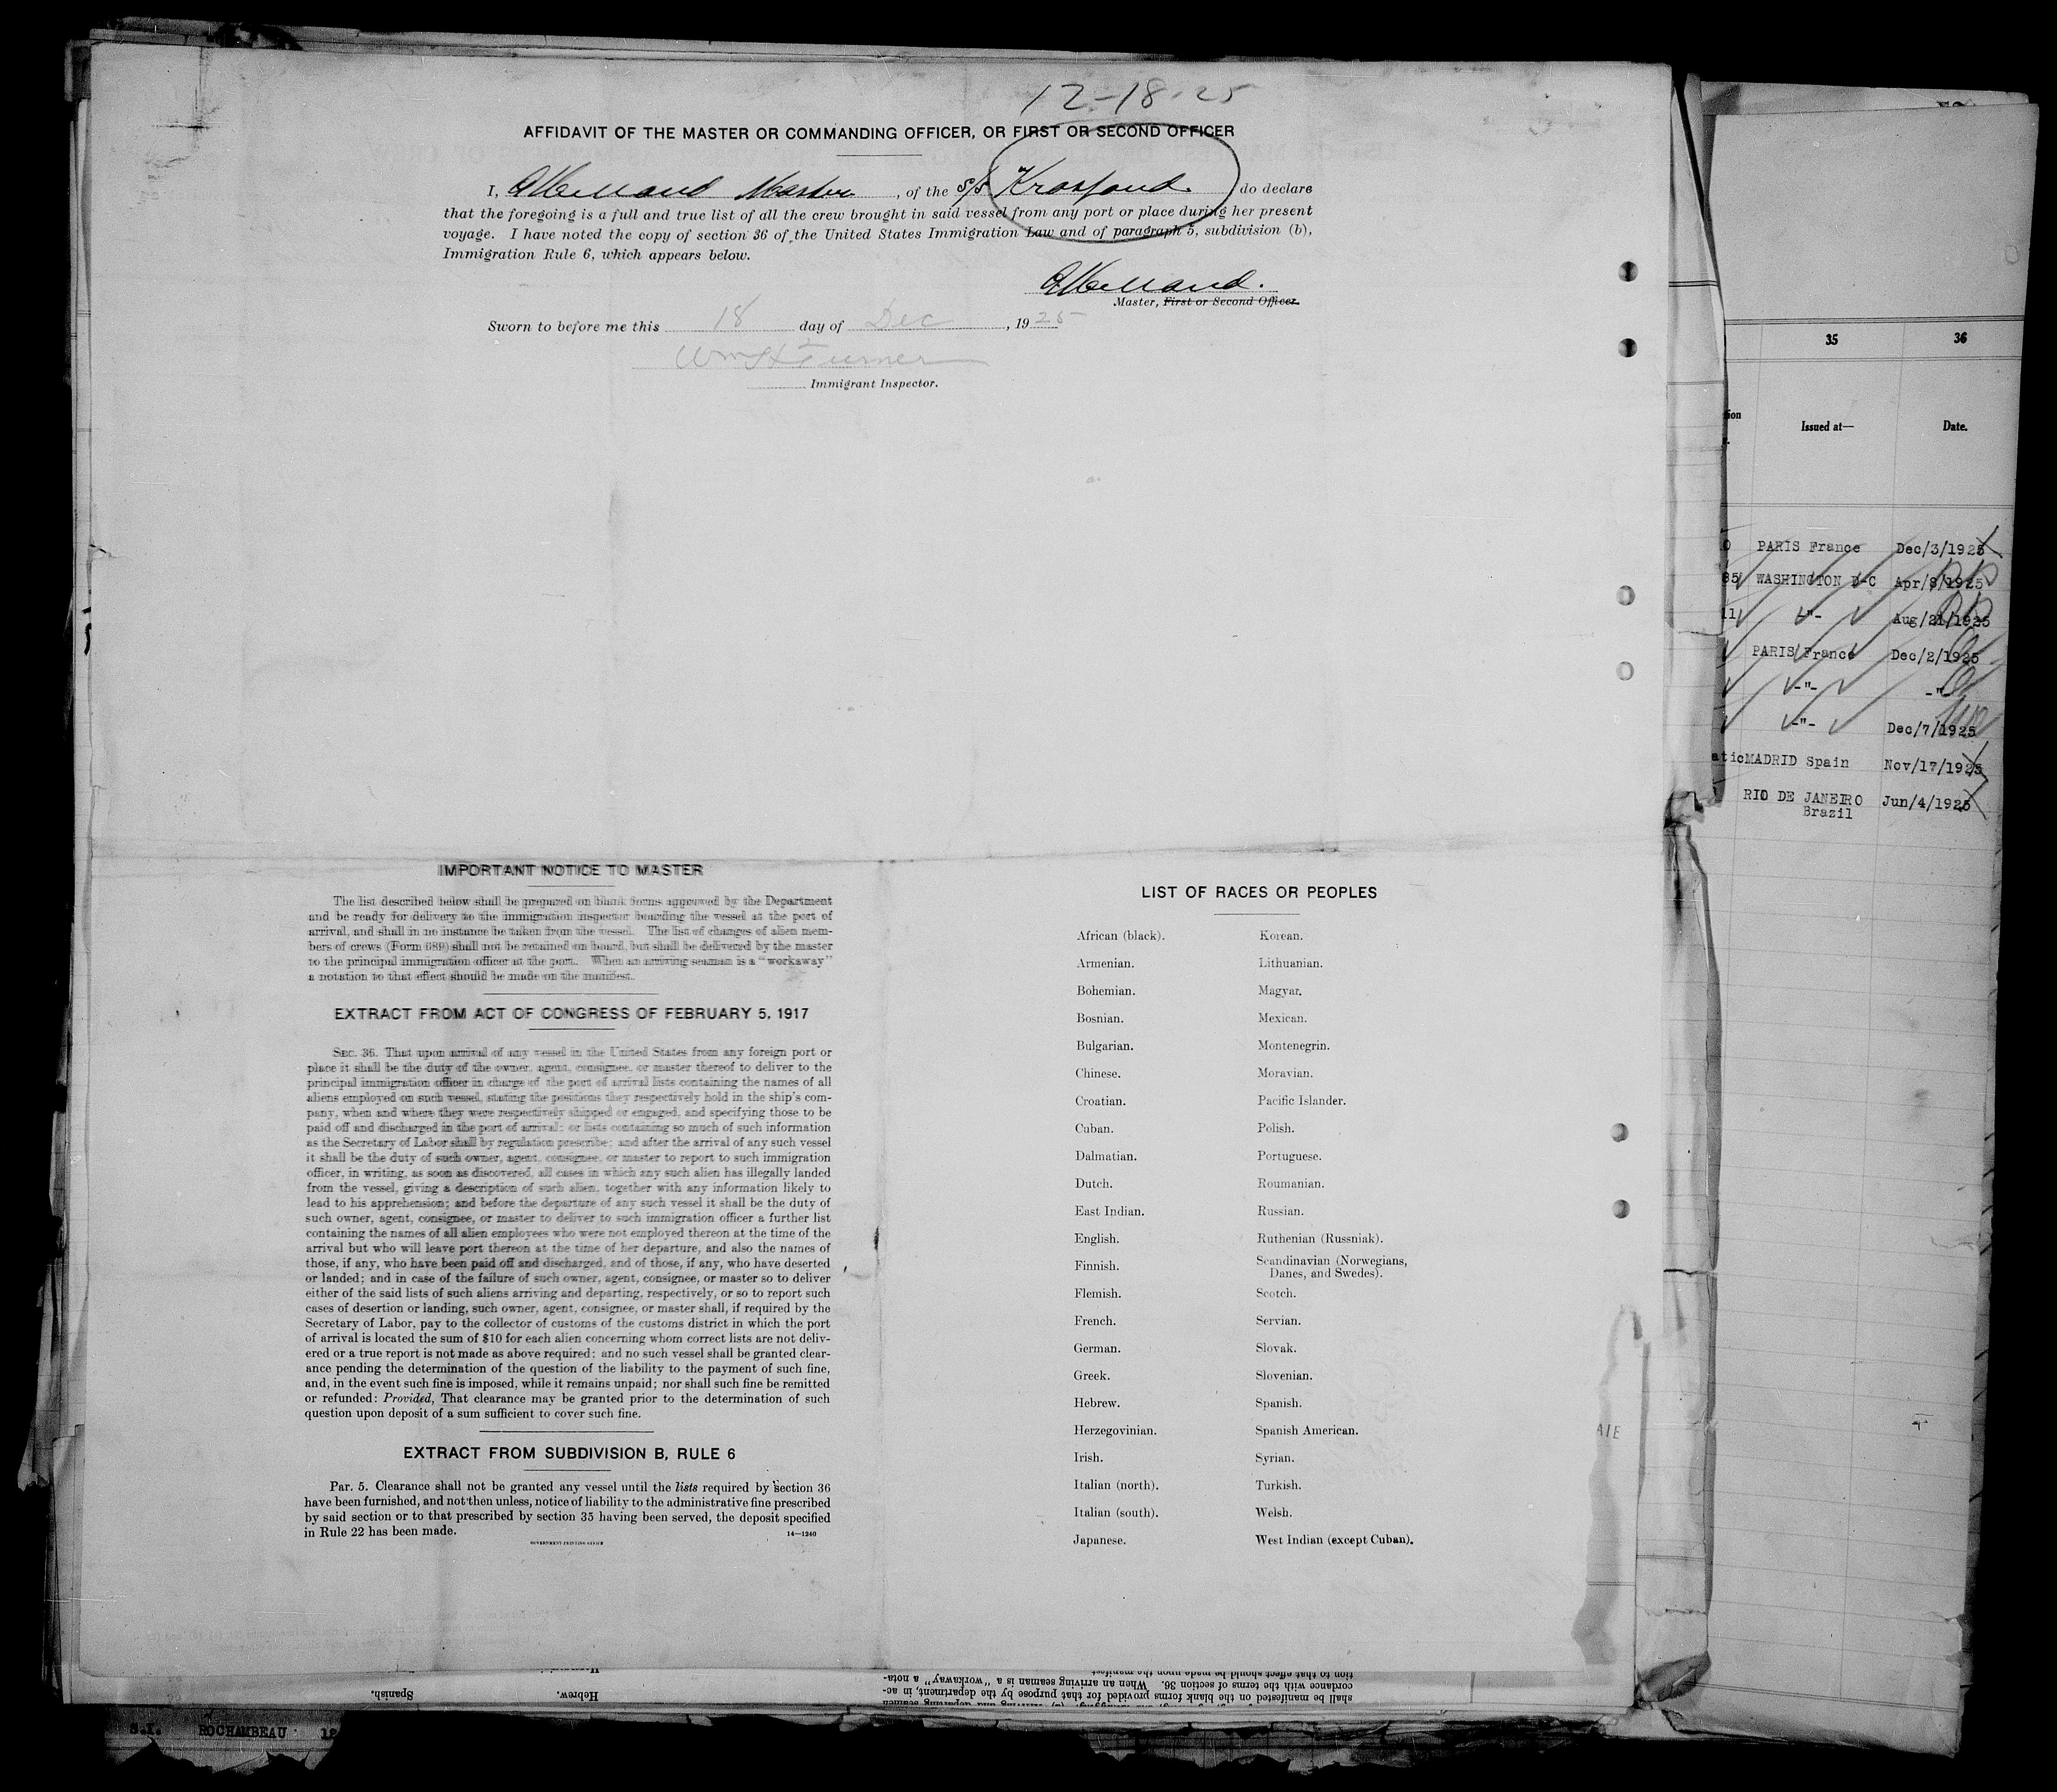 12-18-25
AFFIDAVIT OF THE MASTER OR COMMANDING OFFICER, OR FIRST OR SECOND OFFICER
I, Master, of the S/S Krosfond. do declare
that the foregoing is a full and true list of all the crew brought in said vessel from any port or place during her present
voyage. I have noted the copy of section 36 of the United States Immigration Law and of paragraph 5, subdivision (b),
Immigration Rule 6, which appears below.
Master, First or Second Officer.
Sworn to before me this 18 day of Dec, 1925
Wm H Turner
Immigrant Inspector.
IMPORTANT NOTICE TO MASTER
The list described below shall be prepared on blank forms approved by the Department
and be ready for delivery to the immigration inspector boarding the vessel at the port of
arrival, and shall in no instance be taken from the vessel. The list of changes of alien mem-
bers of crews (Form 689) shall not be retained on board, but shall be delivered by the master
to the principal immigration officer at the port. When an arriving seaman is a "workaway"
a notation to that effect should be made on the manifest.
EXTRACT FROM ACT OF CONGRESS OF FEBRUARY 5, 1917
SEC. 36. That upon arrival of any vessel in the United States from any foreign port or
place it shall be the duty of the owner, agent, consignee, or master thereof to deliver to the
principal immigration officer in charge of the port of arrival lists containing the names of all
aliens employed on such vessel, stating the positions they respectively hold in the ship's com-
pany, when and where they were respectively shipped or engaged, and specifying those to be
paid off and discharged in the port of arrival; or lists containing so much of such information
as the Secretary of Labor shall by regulation prescribe; and after the arrival of any such vessel
it shall be the duty of such owner, agent, consignee, or master to report to such immigration
officer, in writing, as soon as discovered, all cases in which any such alien has illegally landed
from the vessel, giving a description of such alien, together with any information likely to
lead to his apprehension; and before the departure of any such vessel it shall be the duty of
such owner, agent, consignee, or master to deliver to such immigration officer a further list
containing the names of all alien employees who were not employed thereon at the time of the
arrival but who will leave port thereon at the time of her departure, and also the names of
those, if any, who have been paid off and discharged, and of those, if any, who have deserted
or landed; and in case of the failure of such owner, agent, consignee, or master so to deliver
either of the said lists of such aliens arriving and departing, respectively, or so to report such
cases of desertion or landing, such owner, agent, consignee, or master shall, if required by the
Secretary of Labor, pay to the collector of customs of the customs district in which the port
of arrival is located the sum of $10 for each alien concerning whom correct lists are not deliv-
ered or a true report is not made as above required; and no such vessel shall be granted clear-
ance pending the determination of the question of the liability to the payment of such fine,
and, in the event such fine is imposed, while it remains unpaid; nor shall such fine be remitted
or refunded: Provided, That clearance may be granted prior to the determination of such
question upon deposit of a sum sufficient to cover such fine.
EXTRACT FROM SUBDIVISION B, RULE 6
Par. 5. Clearance shall not be granted any vessel until the lists required by section 36
have been furnished, and not then unless, notice of liability to the administrative fine prescribed
by said section or to that prescribed by section 35 having been served, the deposit specified
in Rule 22 has been made.
14—1240
GOVERNMENT PRINTING OFFICE
LIST OF RACES OR PEOPLES
African (black). Korean.
Armenian. Lithuanian.
Bohemian. Magyar.
Bosnian. Mexican.
Bulgarian. Montenegrin.
Chinese. Moravian.
Croatian. Pacific Islander.
Cuban. Polish.
Dalmatian. Portuguese.
Dutch. Roumanian.
East Indian. Russian.
English. Ruthenian (Russniak).
Finnish. Scandinavian (Norwegians,
Danes, and Swedes).
Flemish. Scotch.
French. Servian.
German. Slovak.
Greek. Slovenian.
Hebrew. Spanish.
Herzegovinian. Spanish American.
Irish. Syrian.
Italian (north). Turkish.
Italian (south). Welsh.
Japanese. West Indian (except Cuban).
35 36
Issued at— Date.
PARIS France Dec/3/1925
WASHINGTON D-C Apr/8/1925
-"- Aug/21/1925
PARIS France Dec/2/1925
-"- -"-
-"- Dec/7/1925
MADRID Spain Nov/17/1925
RIO DE JANEIRO Jun/4/1925
Brazil
shall be manifested on the blank forms provided for that purpose by the department, in ac-
cordance with the terms of section 36. When an arriving seaman is a "workaway" a nota-
tion to that effect should be made upon the manifest.
Hebrew. Spanish.
S.I. ROCHAMBEAU 12